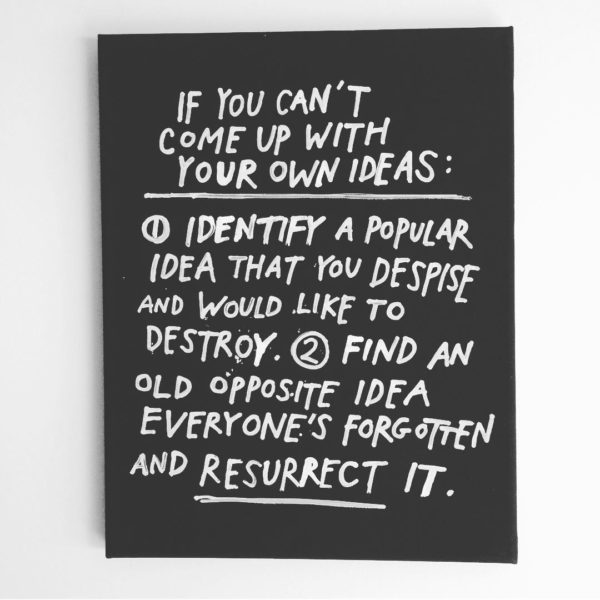 IF YOU CAN'T
COME UP WITH
YOUR OWN IDEAS:
① IDENTIFY A POPULAR
IDEA THAT YOU DESPISE
AND WOULD LIKE TO
DESTROY. ② FIND AN
OLD OPPOSITE IDEA
EVERYONE'S FORGOTTEN
AND RESURRECT IT.